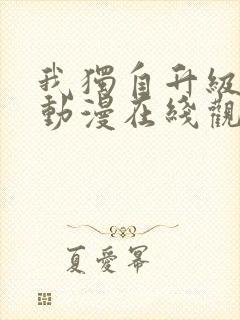 我獨自升級
動漫在綫觀
夏愛冪